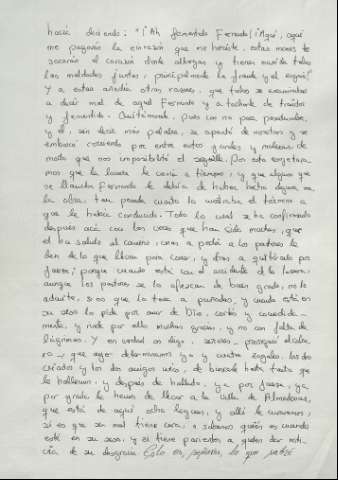 hacía diciendo: "¡Ah fementido Fernando! ¡Aquí, aquí
me pagarás la sinrazón que me heciste: estas manos te
sacarán el corazón donde albergan y tienen manida todas
las maldades juntas, principalmente la fraude y el engaño!"
Y a estas añadía otras razones, que todas se encaminaban
a decir mal de aquel Fernando y a tacharle de traidor
y fementido. Quitámossele, pues con no poca pesadumbre,
y él, sin decir más palabra, se apartó de nosotros y se
emboscó corriendo por entre estos jarales y malezas, de
modo que nos imposibilitó el seguille. Por esto conjeturamos
que la locura le venía a tiempos, y que alguno que
se llamaba Fernando le debía de haber hecho alguna mala
obra, tan pesada cuanto lo mostraba el término a
que le había conducido. Todo lo cual se ha confirmado
después acá con las veces que han sido muchas, que
él ha salido al camino, unas a pedir a los pastores le
den de lo que llevan para comer, y otras a quitárselo por
fuerza; porque cuando está con el accidente de la locura,
aunque los pastores se lo ofrezcan de buen grado, no lo
admite, sino que lo toma a puñadas; y cuando está en
su seso lo pide por amor de Dios, cortés y comedidamente,
y rinde por ello muchas gracias, y no con falta de
lágrimas. Y en verdad os digo, señores- prosiguió el cabrero
-, que ayer determinamos yo y cuatro zagales, los dos
criados y los dos amigos míos, de buscarle hasta tanto que
le hallemos, y después de hallado, ya por fuerza, ya
por grado, le hemos de llevar a la villa de Almodóvar,
que está de aquí ocho leguas, y allí le curaremos,
si es que su mal tiene cura, o sabremos quién es cuando
esté en su seso, y si tiene parientes a quien dar noticia
de su desgracia. Esto es, señores, lo que sabré